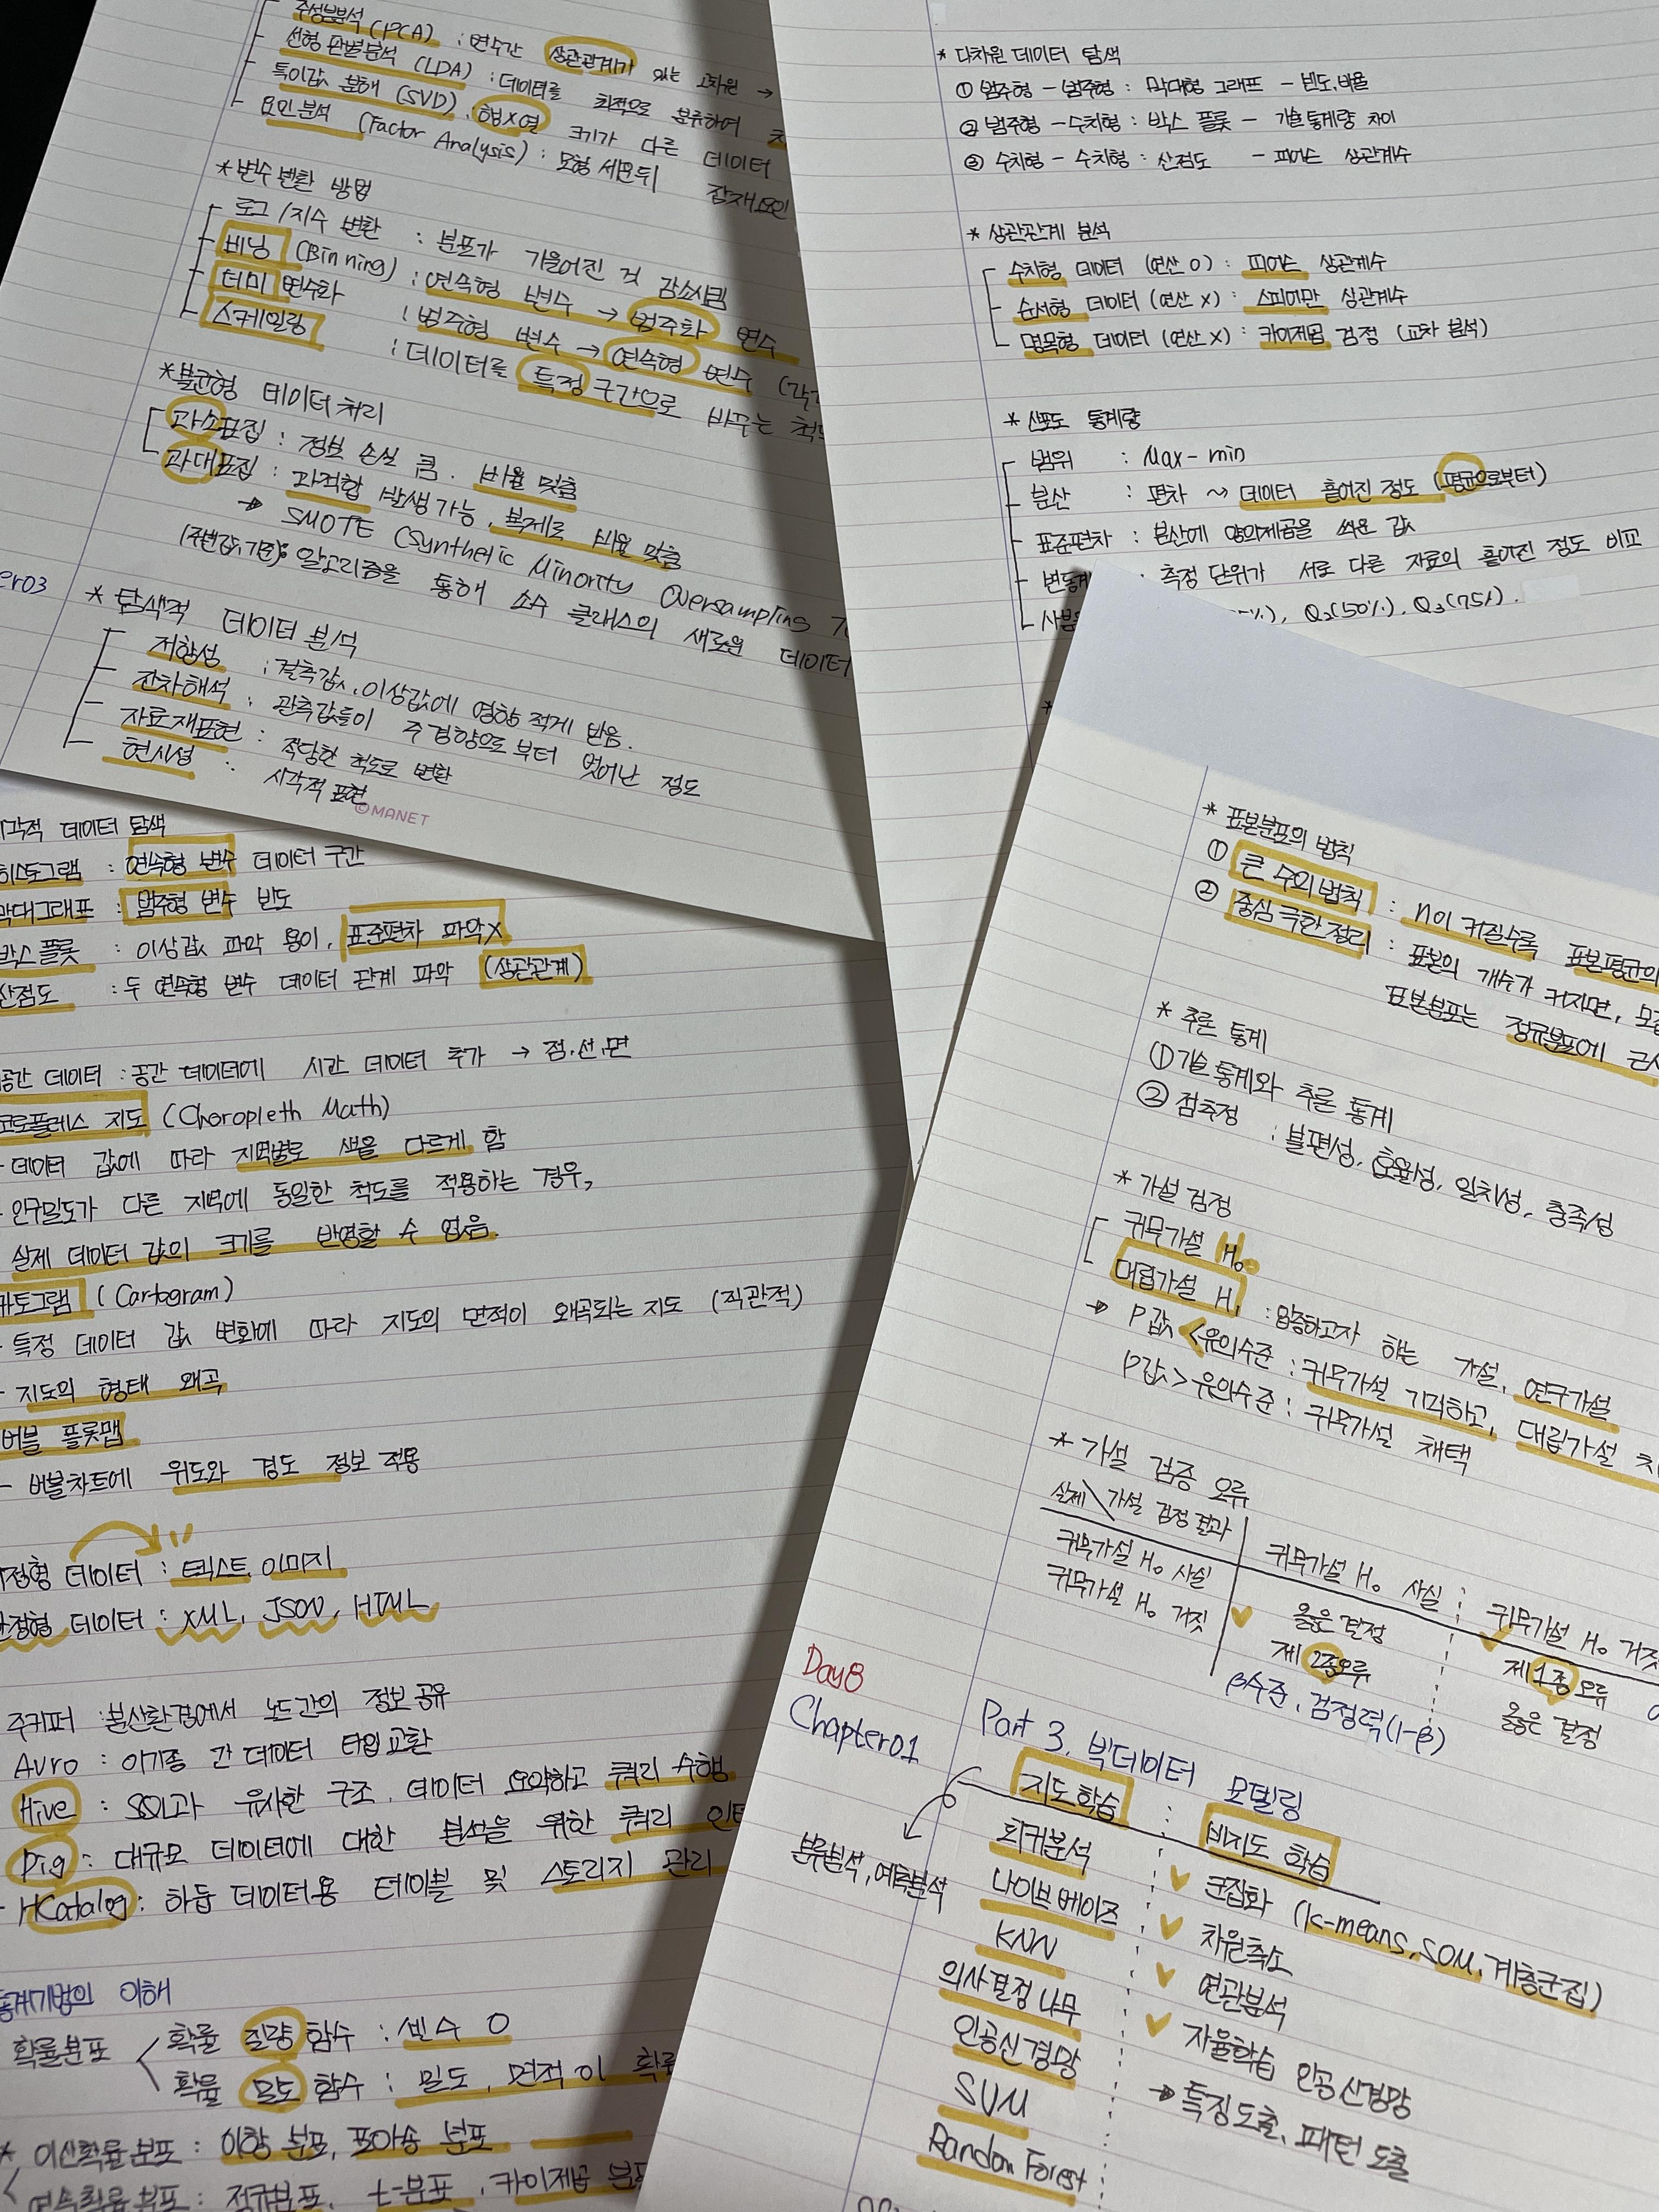 주성분분석 (PCA) : 변수간 상관관계가 있는 고차원 →
선형 판별분석 (LDA) : 데이터를 최적으로 분류하여
특이값 분해 (SVD) : 행X열 크기가 다른 데이터
요인분석 (Factor Analysis) : 모형 세운뒤 잠재요인
*변수변환 방법
로그/지수 변환 : 분포가 기울어진 것 감소시킴
비닝 (Binning) : 연속형 변수 → 범주화 변수
더미 변수화 : 범주형 변수 → 연속형 변수
스케일링 : 데이터를 특정 구간으로 바꾸는 척도
*불균형 데이터 처리
과소표집 : 정보 손실 큼. 비율 맞춤
과대표집 : 과적합 발생가능, 복제로 비율 맞춤
→ SMOTE (Synthetic Minority Oversampling
(주변값 기준): 알고리즘을 통해 소수 클래스의 새로운 데이터
er03
* 탐색적 데이터 분석
저항성 : 결측값, 이상값에 영향 적게 받음.
잔차해석 : 관측값들이 주 경향으로부터 벗어난 정도
자료재표현 : 적당한 척도로 변환
현시성 : 시각적 표현
©MANET
* 다차원 데이터 탐색
① 범주형 - 범주형 : 막대형 그래프 - 빈도, 비율
② 범주형 - 수치형 : 박스 플롯 - 기술통계량 차이
③ 수치형 - 수치형 : 산점도 - 피어슨 상관계수
* 상관관계 분석
수치형 데이터 (연산 O) : 피어슨 상관계수
순서형 데이터 (연산 X) : 스피어만 상관계수
명목형 데이터 (연산 X) : 카이제곱 검정 (교차 분석)
* 산포도 통계량
범위 : Max-min
분산 : 편차 ~> 데이터 흩어진 정도 (평균으로부터)
표준편차 : 분산에 양의제곱을 씌운 값
변동계 : 측정 단위가 서로 다른 자료의 흩어진 정도 비교
사분 %), Q₂(50%), Q₃(75%).
시각적 데이터 탐색
히스토그램 : 연속형 변수 데이터 구간
막대그래프 : 범주형 변수 빈도
박스 플롯 : 이상값 파악 용이, 표준편차 파악X
산점도 : 두 연속형 변수 데이터 관계 파악 (상관관계)
공간 데이터 : 공간 데이터에 시간 데이터 추가 → 점.선.면
코로플레스 지도 (Choropleth Math)
- 데이터 값에 따라 지역별로 색을 다르게 함
- 인구밀도가 다른 지역에 동일한 척도를 적용하는 경우,
실제 데이터 값의 크기를 반영할 수 없음.
카토그램 (Cartogram)
- 특정 데이터 값 변화에 따라 지도의 면적이 왜곡되는 지도 (직관적)
- 지도의 형태 왜곡
버블 플롯맵
- 버블차트에 위도와 경도 정보 적용
비정형 데이터 : 텍스트, 이미지
반정형 데이터 : XML, JSON, HTML
주키퍼 : 분산환경에서 노드간의 정보 공유
Avro : 이기종 간 데이터 타입 교환
Hive : SQL과 유사한 구조. 데이터 요약하고 쿼리 수행
Pig : 대규모 데이터에 대한 분석을 위한 쿼리 인터
- HCatalog : 하둡 데이터용 테이블 및 스토리지 관리
통계기법의 이해
확률분포 < 확률 질량 함수 : 변수 O
확률 밀도 함수 : 밀도, 면적이 확률
* 이산확률분포 : 이항 분포, 포아송 분포
연속확률분포 : 정규분포, t-분포, 카이제곱 분포
* 표본분포의 법칙
① 큰 수의 법칙 : n이 커질수록 표본평균의
② 중심 극한 정리 : 표본의 개수가 커지면, 모집
표본분포는 정규분포에 근사
* 추론 통계
① 기술 통계와 추론 통계
② 점추정 : 불편성, 효율성, 일치성, 충족성
* 가설 검정
귀무가설 H₀
대립가설 H₁ : 입증하고자 하는 가설, 연구가설
→ P값 < 유의수준 : 귀무가설 기각하고, 대립가설
P값 > 유의수준 : 귀무가설 채택
* 가설 검증 오류
실제 \ 가설 검정 결과 귀무가설 H₀ 사실 귀무가설 H₀ 거짓
귀무가설 H₀ 사실 옳은 결정 제 1종 오류
귀무가설 H₀ 거짓 제 2종오류 옳은 결정
β수준, 검정력(1-β)
Day8
Chapter01 Part 3. 빅데이터 모델링
지도학습 : 비지도 학습
분류분석, 예측분석
회귀분석 군집화 (k-means, SOM, 계층군집)
나이브 베이즈 차원축소
KNN 연관분석
의사결정 나무 자율학습 인공신경망
인공신경망 → 특징도출, 패턴 도출
SVM
Random Forest